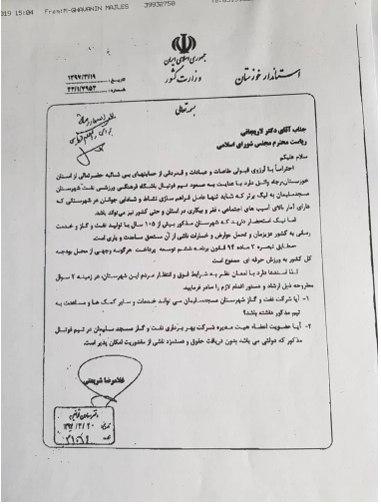 2019 15:04 From:M-GHAVANIN MAJLES 39932750
جمهوری اسلامی ایران
وزارت کشور
استاندار خوزستان
تاریخ: ۱۳۹۷/۳/۱۹
شماره:
بسمه تعالی
جناب آقای دکتر لاریجانی
ریاست محترم مجلس شورای اسلامی
سلام علیکم
احتراماً با آرزوی قبولی طاعات و عبادات و قدردانی از حمایتهای بی شائبه حضرتعالی از استان
خوزستان، رجاء واثق دارد با عنایت به صعود تیم فوتبال باشگاه فرهنگی ورزشی نفت شهرستان
مسجدسلیمان به لیگ برتر که شاید تنها عامل فراهم سازی نشاط و شادابی جوانان در شهرستانی که
دارای آمار بالای آسیب های اجتماعی، فقر و بیکاری در استان و حتی کشور می باشد.
لذا نیک استحضار دارید که شهرستان مذکور بیش از ۱۰۵ سال با تولید نفت و گاز و خدمت
رسانی به کشور عزیزمان و تحمل عوارض و خسارات ناشی از آن مستحق مساعدت و یاری است.
مطابق تبصره ۲ ماده ۹۴ قانون برنامه ششم توسعه پرداخت هرگونه وجهی از محل بودجه
کل کشور به ورزش حرفه ای ممنوع است
لذا استدعا دارد با امعان نظر به شرایط فوق و انتظار مردم این شهرستان، در زمینه ۲ سوال
مطروحه ذیل ارشاد و دستور اقدام لازم را صادر فرمایید
۱- آیا شرکت نفت و گاز شهرستان مسجدسلیمان می تواند خدمات و سایر کمک ها و مساعدت به
تیم مذکور داشته باشد؟
۲- آیا عضویت اعضاء هیت مدیره شرکت بهره برداری نفت و گاز مسجد سلیمان در تیم فوتبال
مذکور که دولتی می باشد، بدون دریافت حقوق و دستمزد ناشی از مأموریت امکان پذیر است.
غلامرضا شریعتی